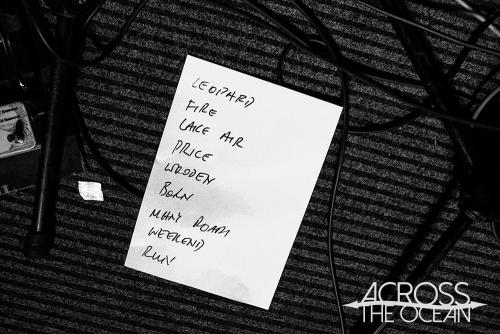 LEOPARD
FIRE
LAKE AIR
PRICE
WOODEN
BORN
MANY ROADS
WEEKEND
RUN
ACROSS
THE OCEAN